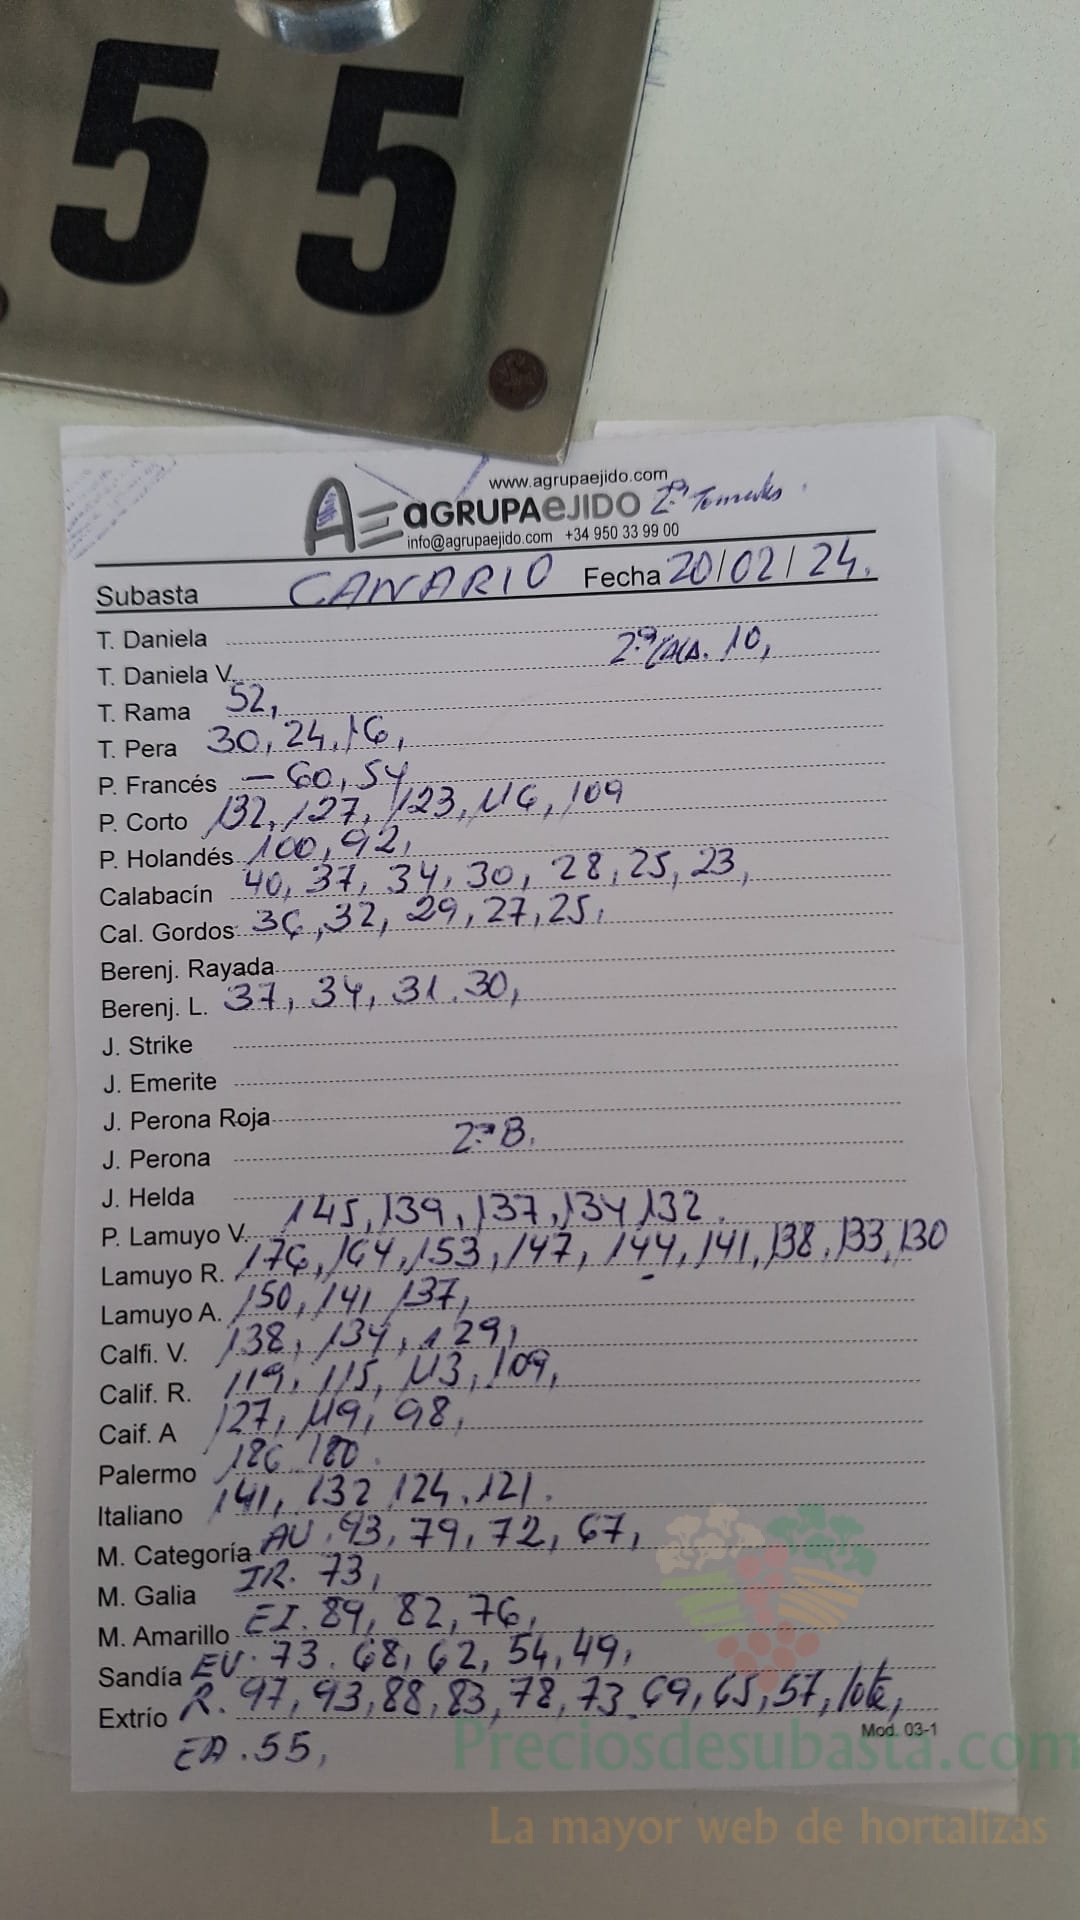 55
www.agrupaejido.com
AE aGRUPAeJIDO
info@agrupaejido.com +34 950 33 99 00
Subasta CANARIO Fecha 20/02/24.
T. Daniela
2ª CALA. 10,
T. Daniela V.
T. Rama 52,
T. Pera 30, 24, 16,
P. Francés — 60, 54
P. Corto 132, 127, 123, 116, 109
P. Holandés 100, 92,
Calabacín 40, 37, 34, 30, 28, 25, 23,
Cal. Gordos 36, 32, 29, 27, 25,
Berenj. Rayada
Berenj. L. 37, 34, 31. 30,
J. Strike
J. Emerite
J. Perona Roja
J. Perona 2ª B.
J. Helda
P. Lamuyo V. 145, 139, 137, 134, 132.
Lamuyo R. 176, 164, 153, 147, 144, 141, 138, 133, 130
Lamuyo A. 150, 141, 137,
Calfi. V. 138, 134, 129,
Calif. R. 119, 115, 113, 109,
Caif. A 127, 119, 98,
Palermo 186 180.
Italiano 141, 132 124. 121.
M. Categoría AU. 93, 79, 72, 67,
M. Galia IR. 73,
M. Amarillo EI. 89, 82, 76,
Sandía EV. 73. 68, 62, 54, 49,
Extrío R. 97, 93, 88, 83, 78, 73. 69, 65, 57, lote,
Mod. 03-1
EA. 55,
Preciosdesubasta.com
La mayor web de hortalizas